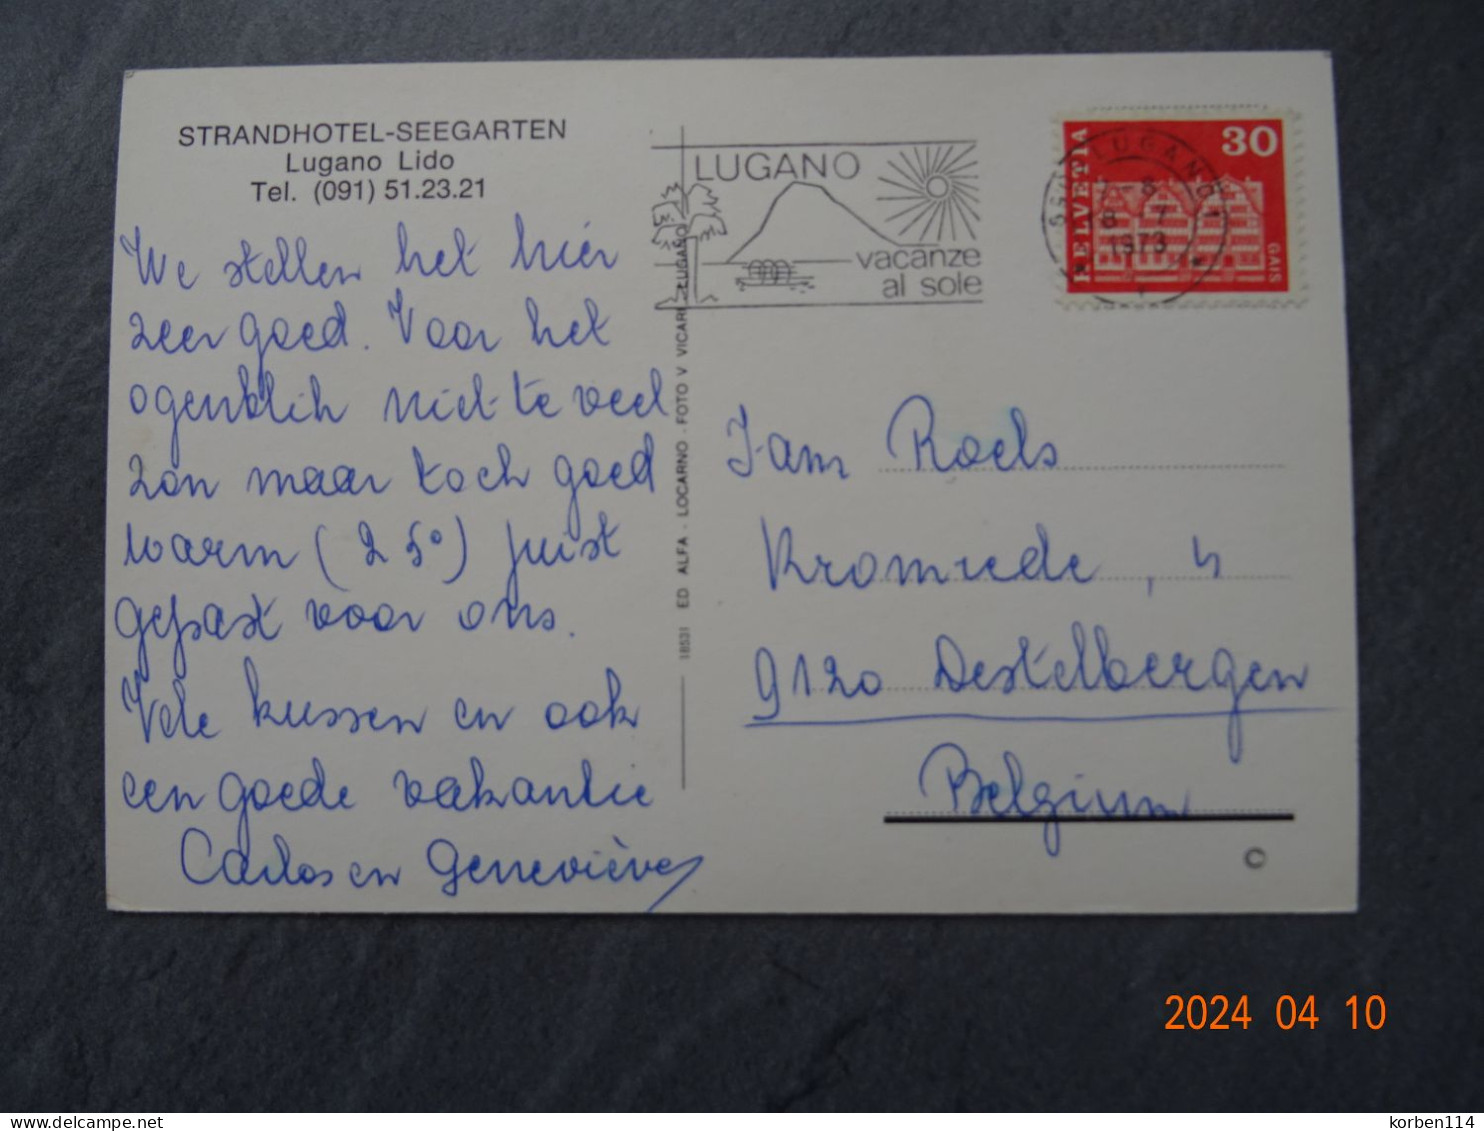 STRANDHOTEL-SEEGARTEN
Lugano Lido
Tel. (091) 51.23.21
We stellen het hier
zeer goed. Voor het
ogenblik niet te veel
zon maar toch goed
warm (25°) juist
gepast voor ons.
Vele kussen en ook
een goede vakantie
Carlos en Geneviève
18531 ED. ALFA - LOCARNO - FOTO V VICARI - LUGANO
LUGANO
vacanze
al sole
LUGANO
-8
8 7
1973
HELVETIA
30
GAIS
Fam Roels
Kromvelde, 4
9120 Destelbergen
Belgium
©
2024 04 10
korben114